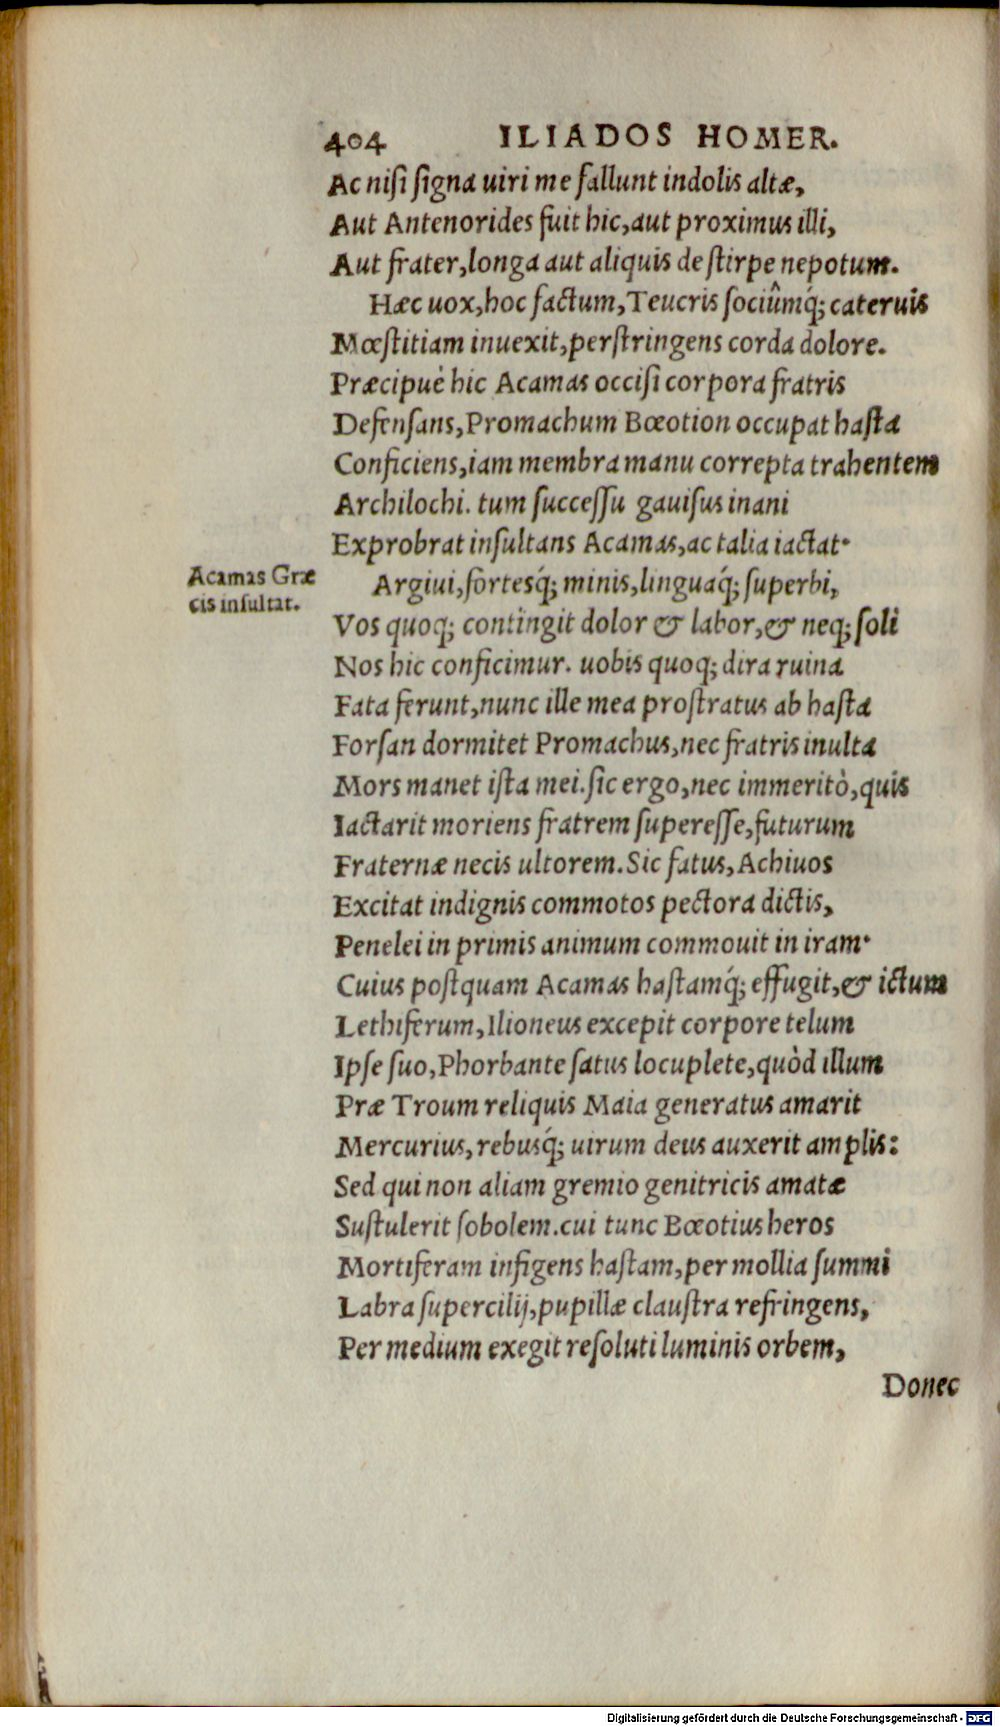 404 ILIADOS HOMER.
Ac nisi signa uiri me fallunt indolis altæ,
Aut Antenorides fuit hic, aut proximus illi,
Aut frater, longa aut aliquis de stirpe nepotum.
Hæc uox, hoc factum, Teucris sociûmq́; cateruis
Mœstitiam inuexit, perstringens corda dolore.
Præcipuè hic Acamas occisi corpora fratris
Defensans, Promachum Bœotion occupat hasta
Conficiens, iam membra manu correpta trahentem
Archilochi. tum successu gauisus inani
Exprobrat insultans Acamas, ac talia iactat.
Acamas Græ
cis insultat.
Argiui, fortesq́; minis, linguaq́; superbi,
Vos quoq; contingit dolor & labor, & neq; soli
Nos hic conficimur. uobis quoq; dira ruina
Fata ferunt, nunc ille mea prostratus ab hasta
Forsan dormitet Promachus, nec fratris inulta
Mors manet ista mei. sic ergo, nec immeritò, quis
Iactarit moriens fratrem superesse, futurum
Fraternæ necis ultorem. Sic fatus, Achiuos
Excitat indignis commotos pectora dictis,
Penelei in primis animum commouit in iram.
Cuius postquam Acamas hastamq́; effugit, & ictum
Lethiferum, Ilioneus excepit corpore telum
Ipse suo, Phorbante satus locuplete, quòd illum
Præ Troum reliquis Maia generatus amarit
Mercurius, rebusq́; uirum deus auxerit amplis:
Sed qui non aliam gremio genitricis amatæ
Sustulerit sobolem. cui tunc Bœotius heros
Mortiferam infigens hastam, per mollia summi
Labra supercilij, pupillæ claustra refringens,
Per medium exegit resoluti luminis orbem,
Donec
Digitalisierung gefördert durch die Deutsche Forschungsgemeinschaft - DFG